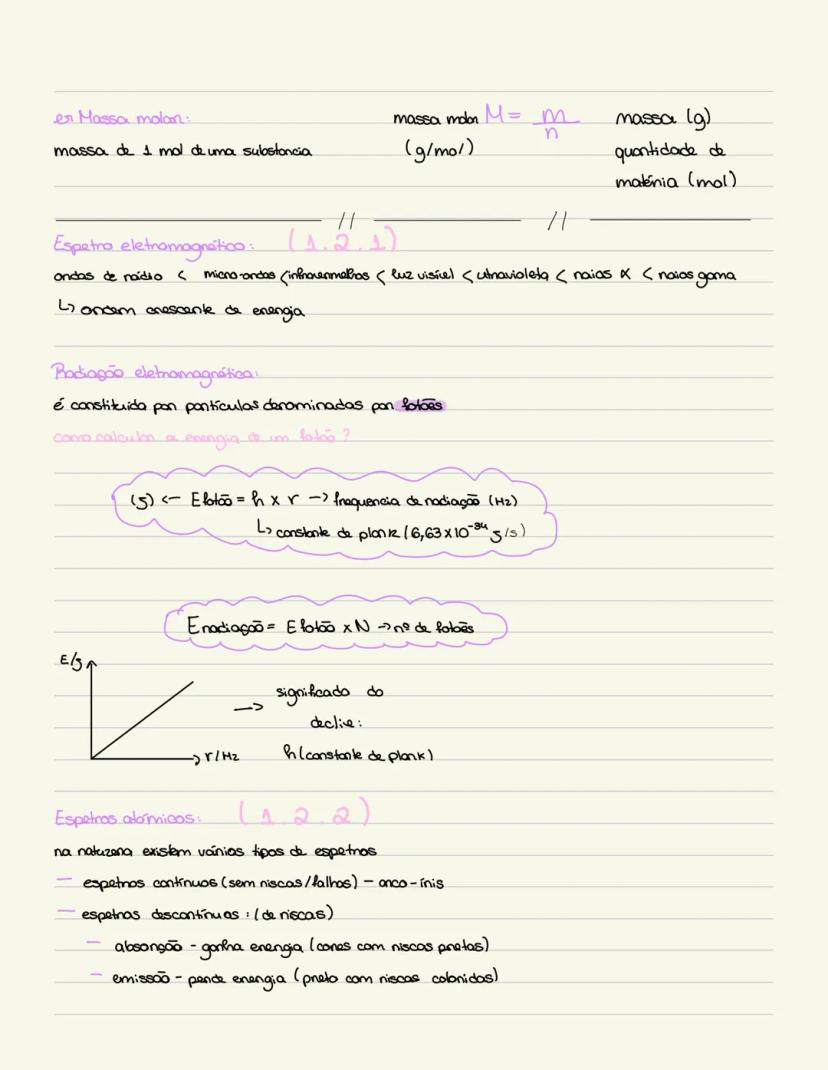 er Massa molar:
massa molar M = m/n
massa (g)
massa de 1 mol de uma substancia
(g/mol)
quantidade de
matéria (mol)
// //
Espetro eletromagnético: (1.2.1)
ondas de rádio < micro-ondas < infravermelhos < luz visível < utravioleta < raios x < raios gama
↳ ordem crescente de energia
Radiação eletromagnética:
é constituida por partículas denominadas por fotões
como calcular a energia de um fotão?
(J) <- E fotão = h x r -> frequencia de radiação (Hz)
↳ constante de plank (6,63 x 10⁻³⁴ J/s)
E radiação = E fotão x N -> nº de fotões
E/J
-> significado do
declive:
r/Hz
h (constante de plank)
Espetros atómicos: (1.2.2)
na natureza existem vários tipos de espetros
— espetros contínuos (sem riscas/falhas) - arco-íris
— espetros descontínuos: (de riscas)
— absorção - ganha energia (cores com riscas pretas)
— emissão - perde energia (preto com riscas coloridas)